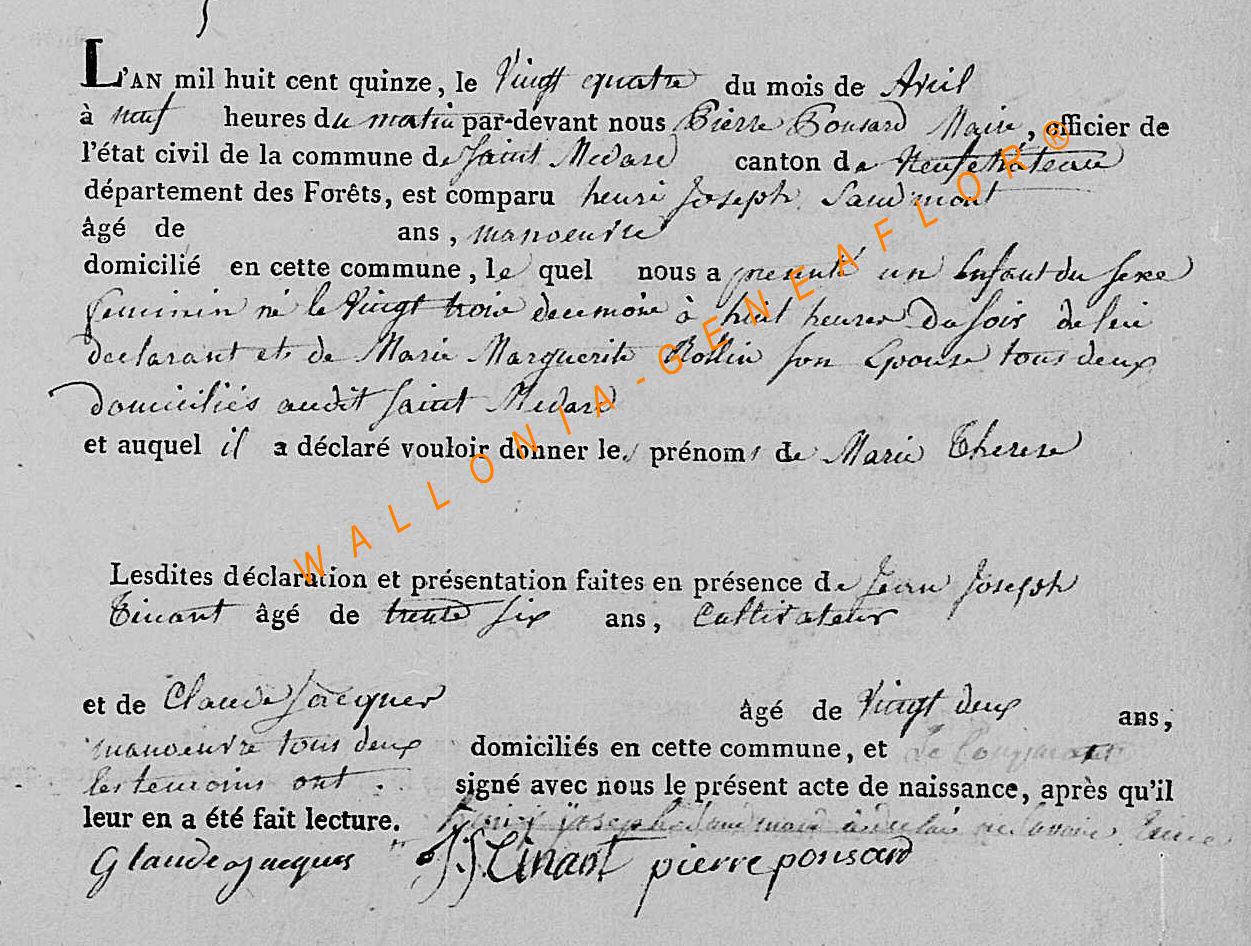 L'AN mil huit cent quinze, le Vingt quatre du mois de Avril
à neuf heures du matin par-devant nous Pierre Ponsard Maire, officier de
l'état civil de la commune de Saint Medard canton de Neufchâteau
département des Forêts, est comparu henri Joseph Saudmont
âgé de ans, manoeuvre
domicilié en cette commune, le quel nous a presenté un Enfant du sexe
feminin né le Vingt trois de ce mois à huit heures du soir de lui
declarant et de Marie Marguerite Rollin son Epouse tous deux
domiciliés audit Saint Medard
et auquel il a déclaré vouloir donner les prénoms de Marie Therese
Lesdites déclaration et présentation faites en présence de Jean Joseph
Tinant âgé de trente six ans, Cultivateur
et de Claude Jacques âgé de Vingt deux ans,
manoeuvre tous deux domiciliés en cette commune, et le
les temoins ont signé avec nous le présent acte de naissance, après qu'il
leur en a été fait lecture. henri Joseph a declaré
Glaude Jacques J J Tinant pierre ponsard
WALLONIA-GENEAFLOR®